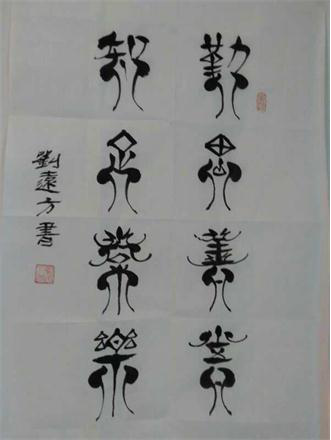 勤思善
知足常樂
劉遠方書